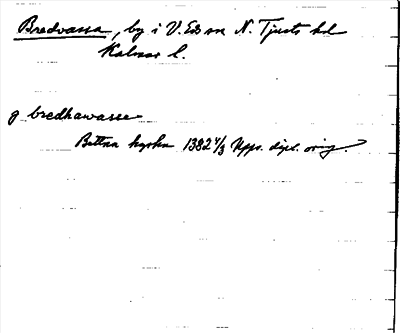 Bredvassa, by i V. Ed sn N. Tjusts hd
Kalmar l.
g bredhawasse
Bettna kyrka 1382 4/3 Upps. dipl. orig.